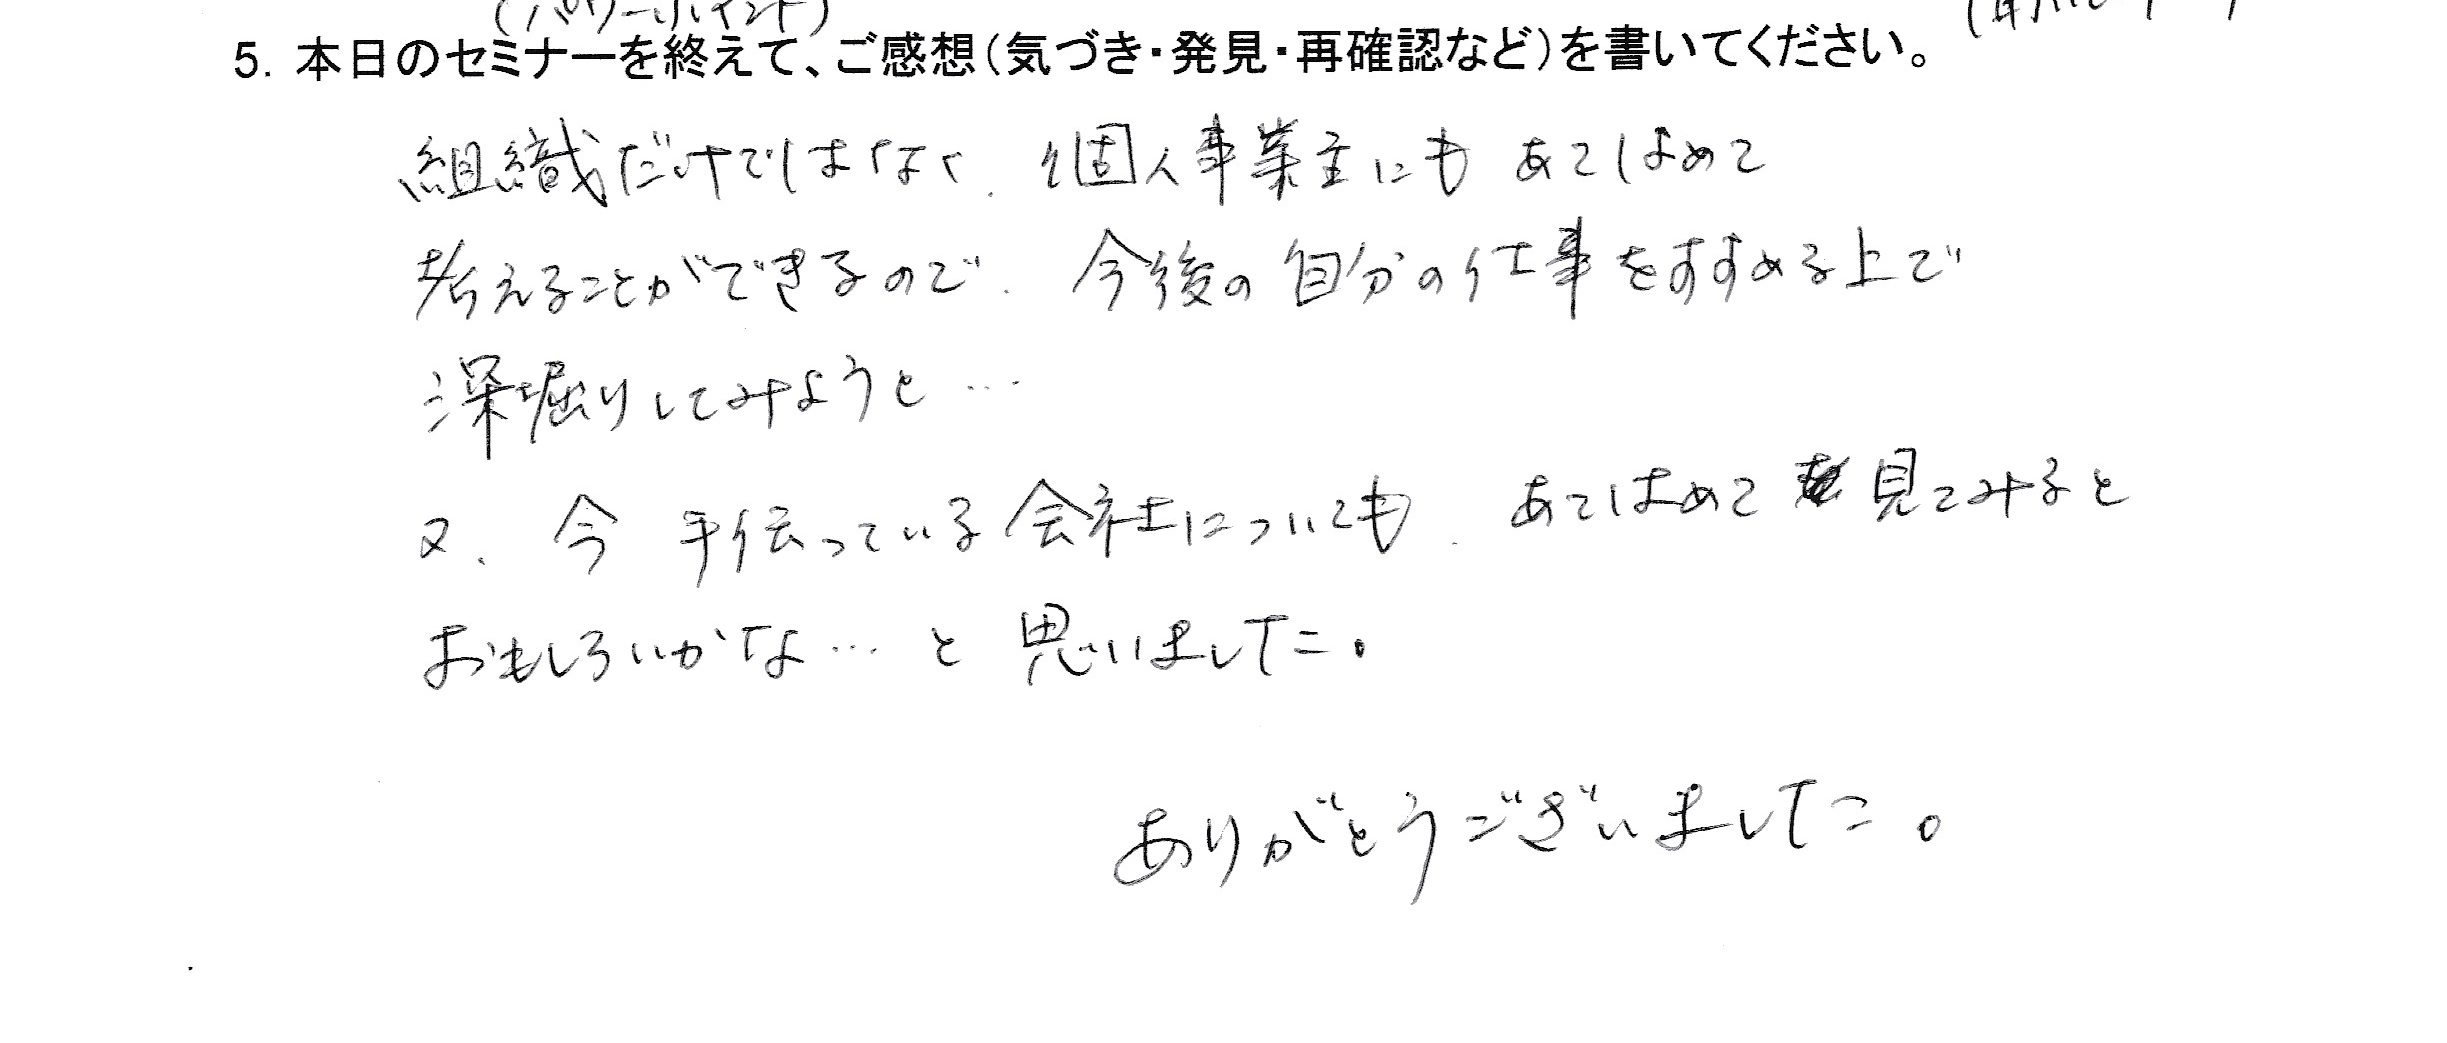 (パワーポイント)
5. 本日のセミナーを終えて、ご感想(気づき・発見・再確認など)を書いてください。
組織だけではなく、個人事業主にもあてはめて
考えることができるので、今後の自分の仕事をすすめる上で
深堀りしてみようと…
又、今 手伝っている会社についても、あてはめて見てみると
おもしろいかな…と思いました。
ありがとうございました。